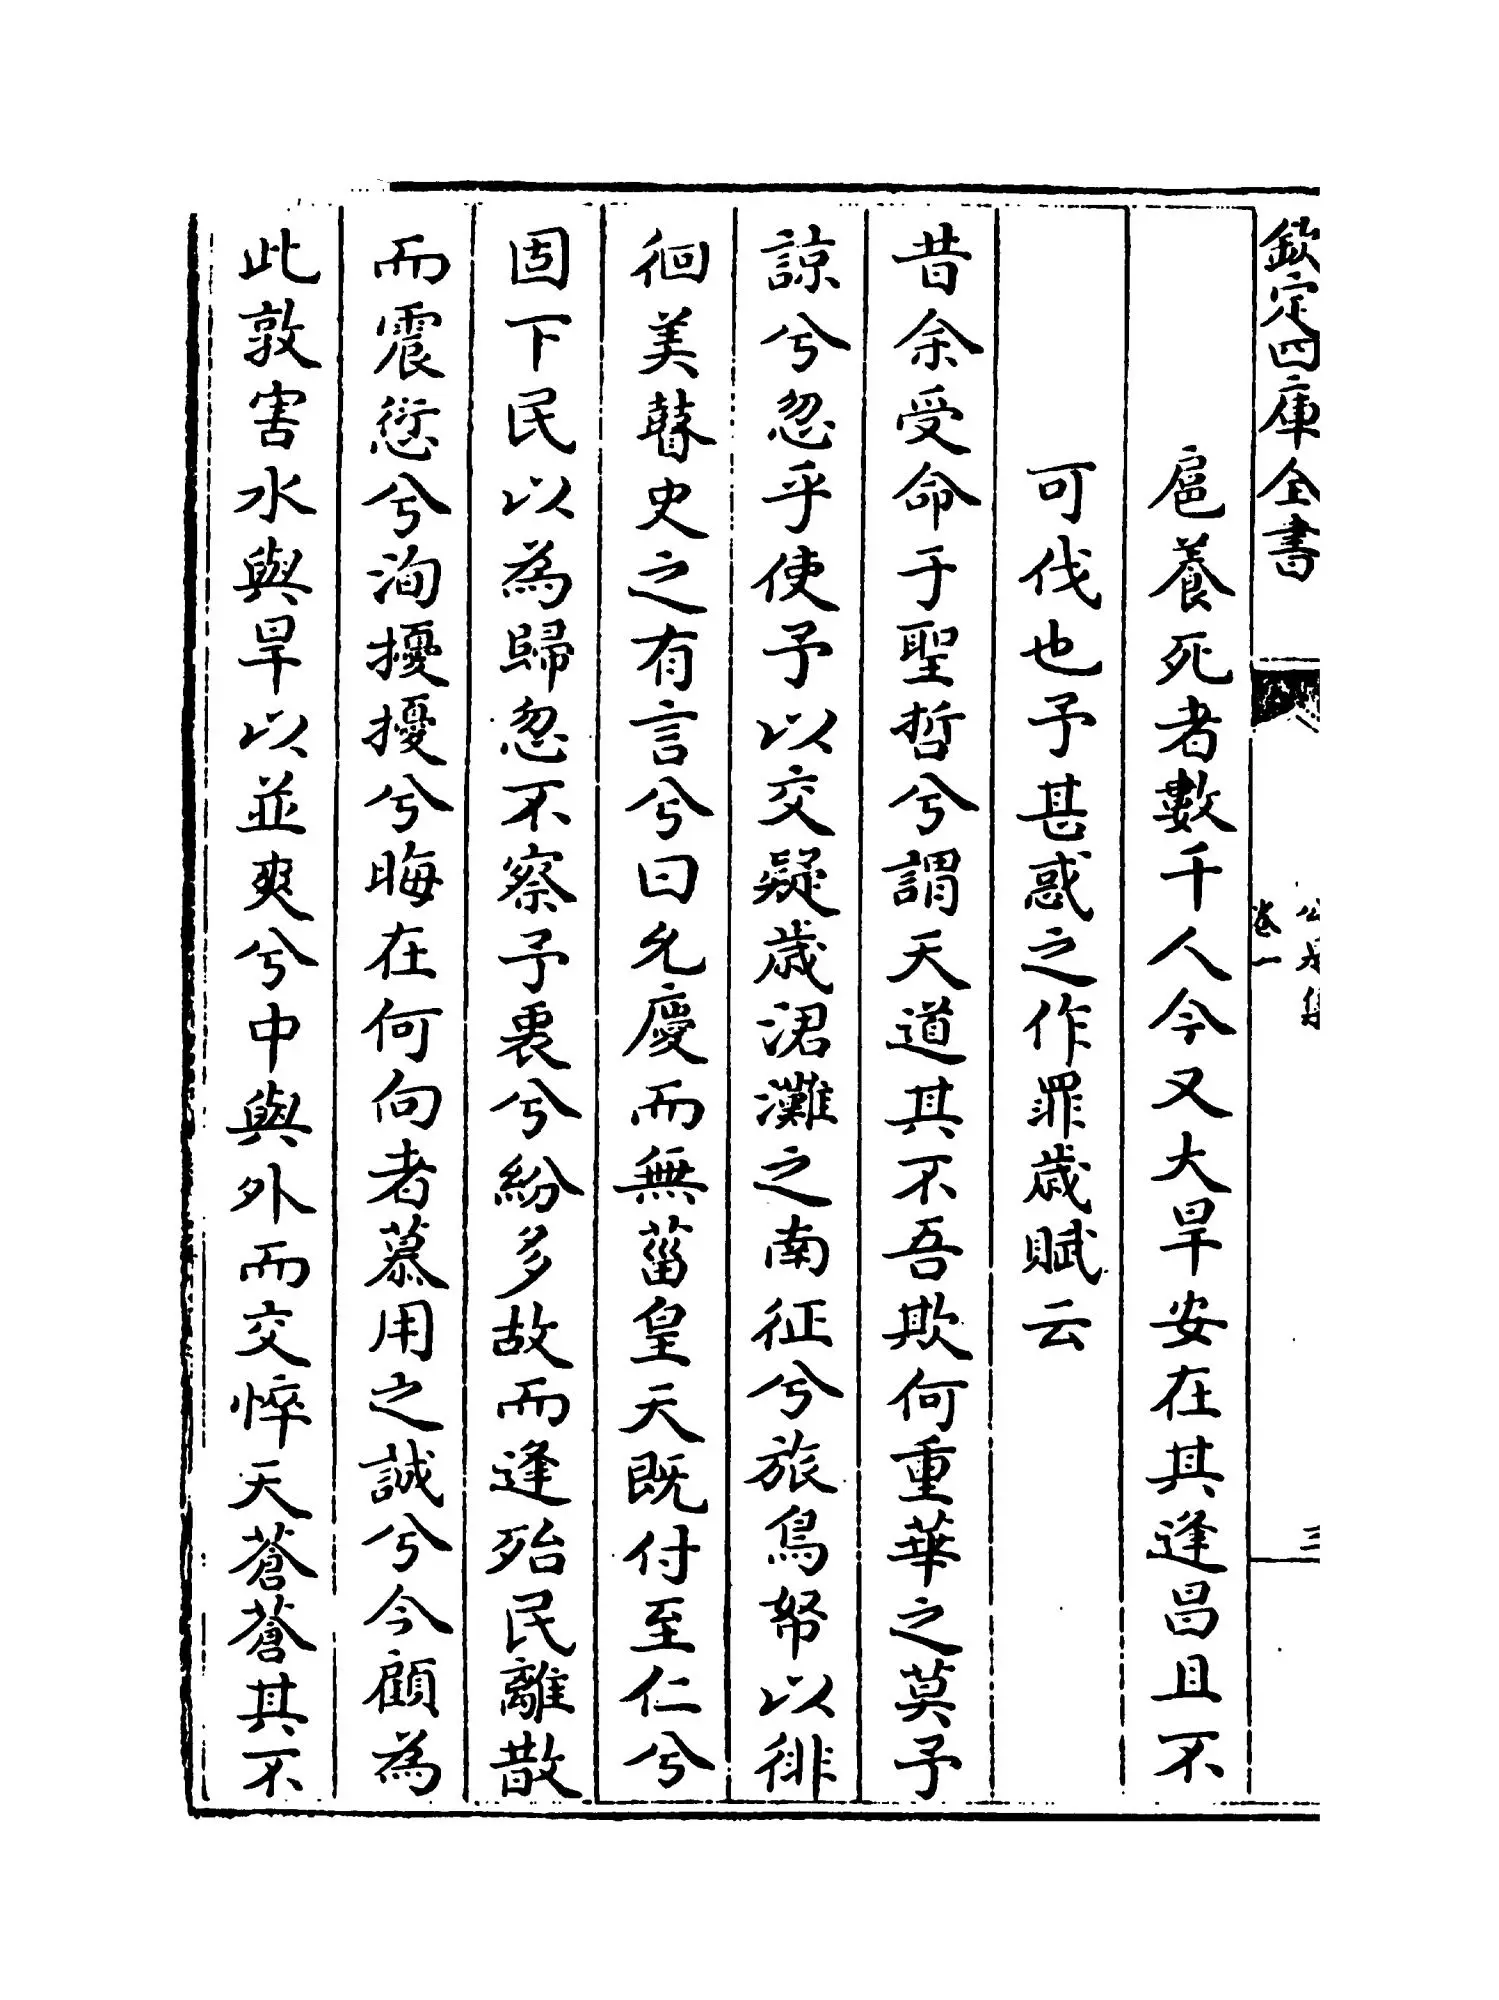 欽定四庫全書
卷一
三
扈養死者數千人今又大旱安在其逢昌且不
可伐也予甚惑之作罪歳賦云
昔余受命于聖哲兮謂天道其不吾欺何重華之莫予
諒兮忽乎使予以交疑歳涒灘之南征兮旅鳥帑以徘
徊美瞽史之有言兮曰允慶而無菑皇天既付至仁兮
固下民以為歸忽不察予裏兮紛多故而逢殆民離散
而震愆兮洶擾擾兮晦在何向者慕用之誠兮今顧為
此敦害水與旱以並爽兮中與外而交悴天蒼蒼其不